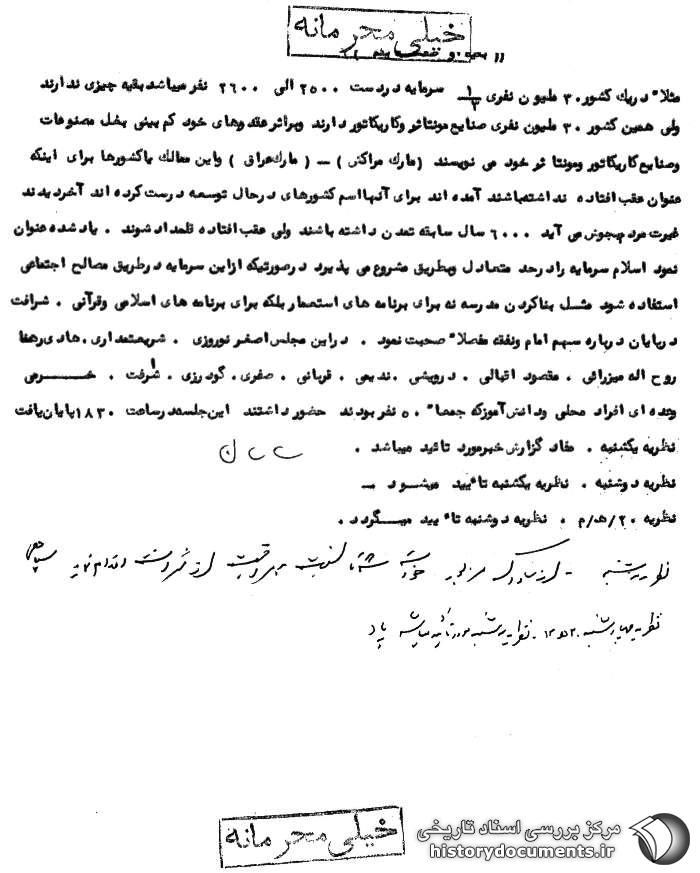 خیلی محرمانه
مثلا" دریك کشور ۳۰ ملیون نفری ۱/۳ سرمایه دردست ۲۵۰۰ الی ۲٦۰۰ نفر میباشد بقیه چیزی ندارند
ولی همین کشور ۳۰ ملیون نفری صنایع مونتاژ و کاریکاتور دارند وبراثر عقده های خود کم بینی بغل مصنوعات
وصنایع کاریکاتور ومونتا ژ خود می نویسند (مارك مراکش) ــ (مارك عراق) واین ممالك یاکشورها برای اینکه
عنوان عقب افتاده نداشته باشند آمده اند برای آنها اسم کشورهای درحال توسعه درست کرده اند آخر دیدند
غیرت مردم بجوش می آید ٦۰۰۰ سال سابقه تمدن داشته باشند ولی عقب افتاده قلمداد شوند . یاد شده عنوان
نمود اسلام سرمایه رادر حد متعادل وبطریق مشروع می پذیرد درصورتیکه ازاین سرمایه درطریق مصالح اجتماعی
استفاده شود مثـل بناکردن مدرسه نه برای برنامه های استعمار بلکه برای برنامه های اسلامی وقرآنی . شرافت
درپایان درباره سهم امام ونفقه مفصلا" صحبت نمود . دراین مجلس اصغر نوروزی . شریعتمداری . هادی رهنما
روح اله میرزائی . مقصود اقبالی . درویشی . ندیمی . قربانی . صفری . گودرزی . شرفت . خـــرمی
وعده ای افراد محلی ودانش آموز که جمعا" ۵۰ نفر بودند حضور داشتند این جلسه درساعت ۱۸۳۰ پایان یافت
نظریه یکشنبه . مفاد گزارش خبر مورد تائید میباشد .
نظریه دوشنبه . نظریه یکشنبه تا یید میشـود ــ
نظریه ۲۰/ه‍/م . نظریه دوشنبه تا" یید میـگردد .
نظریه سه شنبه
نظریه چهارشنبه نظریه سه شنبه مورد تأیید میباشد
خیلی محرمانه
مرکز بررسی اسناد تاریخی
historydocuments.ir